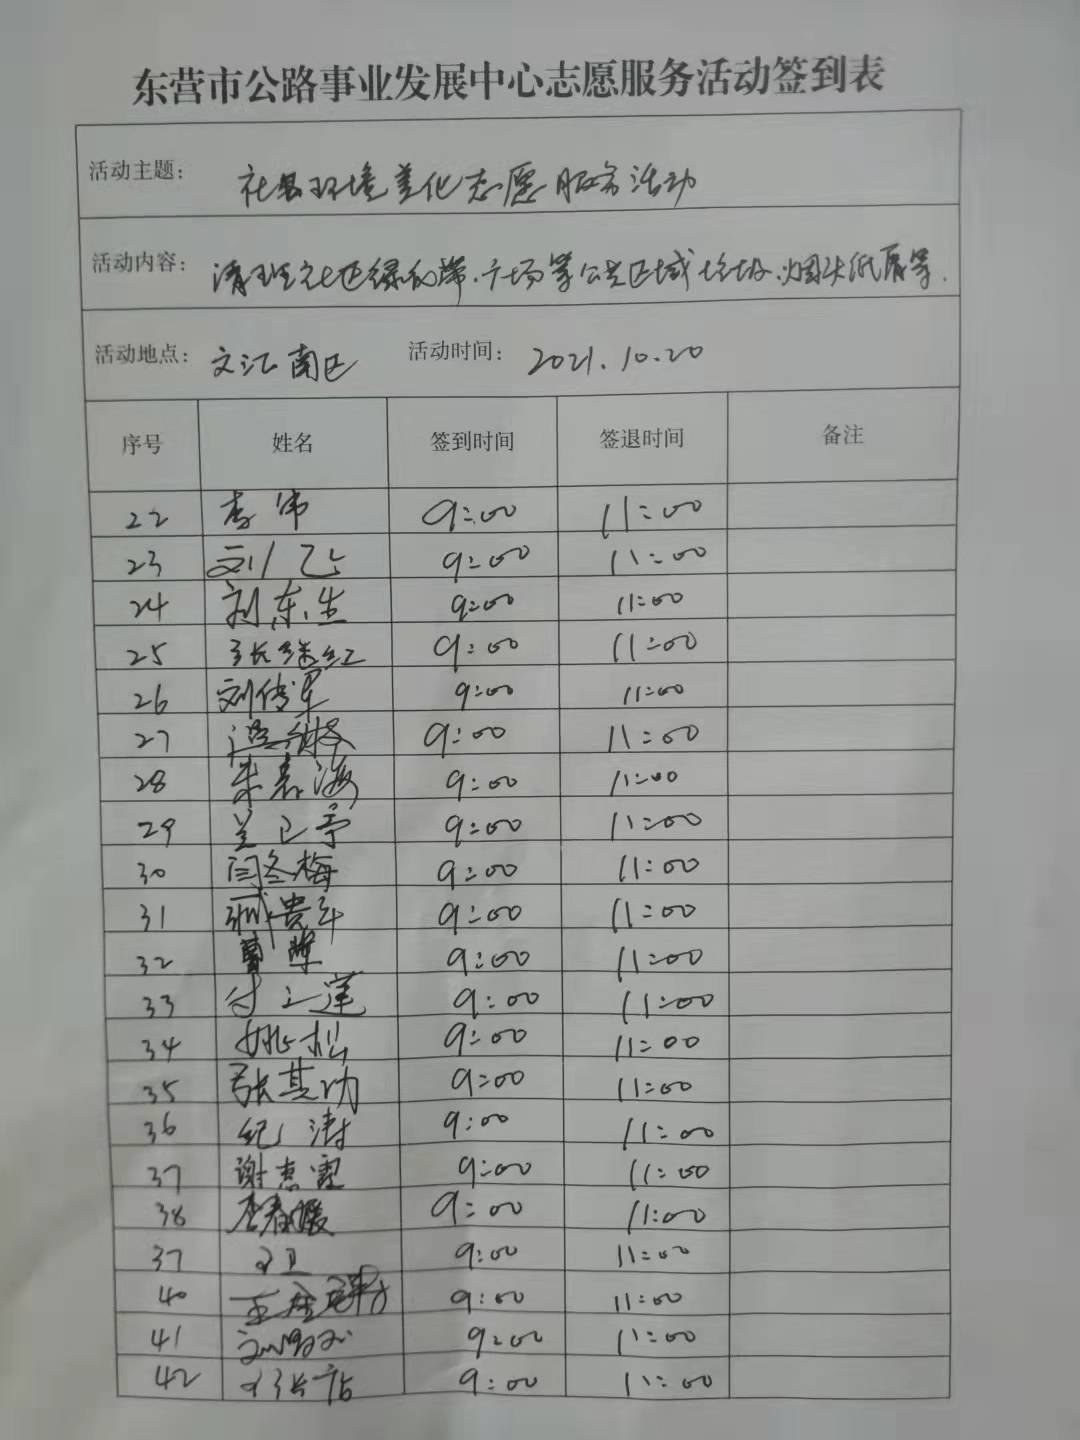 东营市公路事业发展中心志愿服务活动签到表
活动主题： 社县环境美化志愿服务活动
活动内容： 清理社区绿化带、广场等公共区域垃圾、烟头纸屑等.
活动地点： 文汇南区 活动时间： 2021.10.20
序号 姓名 签到时间 签退时间 备注
22 李伟 9:00 11:00
23 刘 9:00 11:00
24 刘东生 9:00 11:00
25 张 红 9:00 11:00
26 刘传军 9:00 11:00
27 9:00 11:00
28 朱春海 9:00 11:00
29 9:00 11:00
30 闫冬梅 9:00 11:00
31 9:00 11:00
32 9:00 11:00
33 付 莲 9:00 11:00
34 姚松 9:00 11:00
35 张其功 9:00 11:00
36 纪涛 9:00 11:00
37 谢惠霞 9:00 11:00
38 李春媛 9:00 11:00
37 9:00 11:00
40 王 9:00 11:00
41 9:00 11:00
42 9:00 11:00